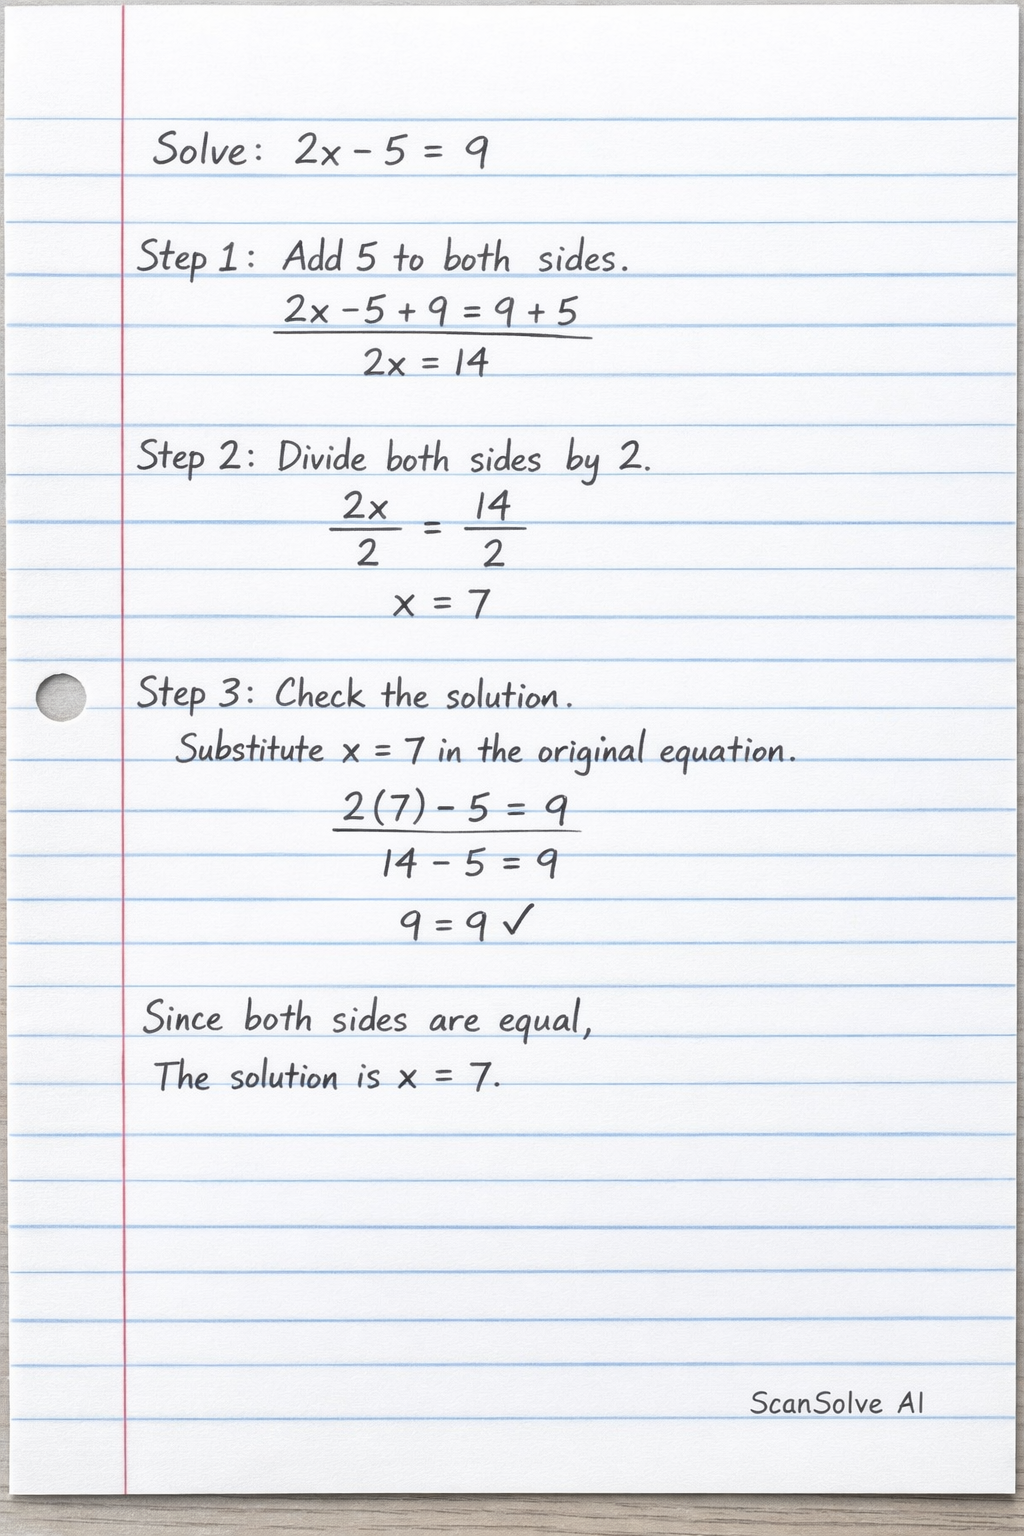 Solve: 2x - 5 = 9
Step 1: Add 5 to both sides.
2x - 5 + 9 = 9 + 5
2x = 14
Step 2: Divide both sides by 2.
2x/2 = 14/2
x = 7
Step 3: Check the solution.
Substitute x = 7 in the original equation.
2(7) - 5 = 9
14 - 5 = 9
9 = 9 ✓
Since both sides are equal,
The solution is x = 7.
ScanSolve AI